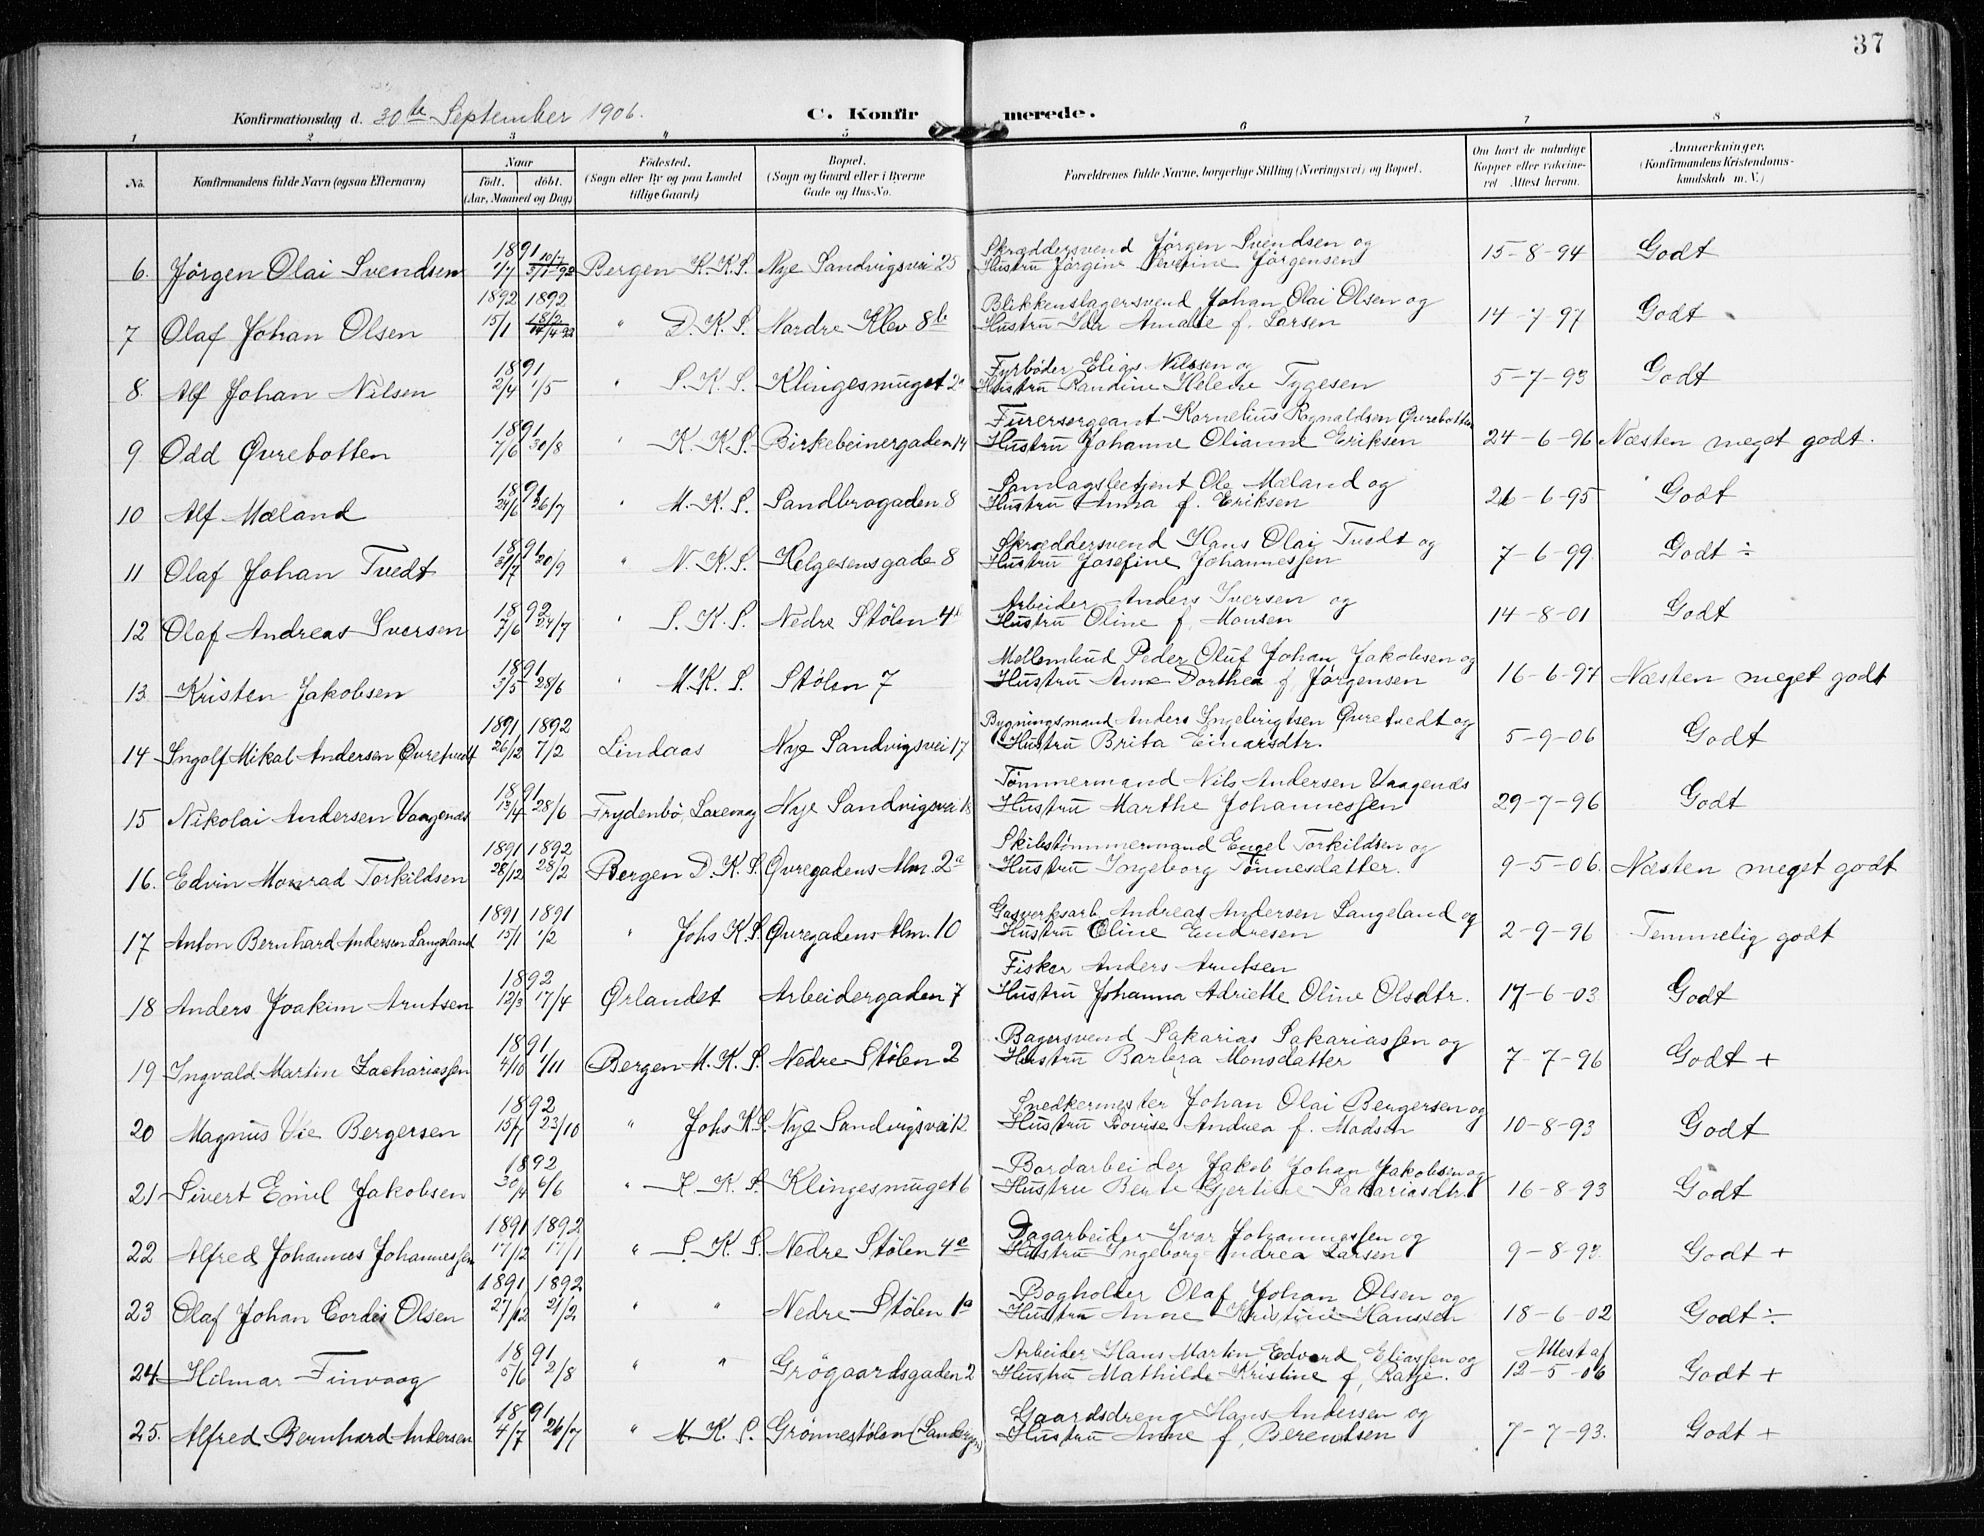 37
Konfirmationsdag d. 30te September 1906. C. Konfirmerede.
1 2 3 4 5 6 7 8
No. Konfirmandens fulde Navn (ogsaa Efternavn) Naar født. døbt. (Aar, Maaned og Dag) Fødested. (Sogn eller By og paa Landet tillige Gaard) Bopæl. (Sogn og Gaard eller i Byerne Gade og Hus-No. Forældrenes fulde Navne, borgerlige Stilling (Næringsvei) og Bopæl. Om havt de naturlige Kopper eller vakcineret Attest herom. Anmærkninger. (Konfirmandens Kristendomskundskab m. V.)
Skræddersvend Jørgen Svendsen og
6. Jørgen Olai Svendsen 1891 1/7 Bergen K.K.S. Nye Sandvigsvei 25 Hustru Jørgine Severine Jørgensen 15-8-94 Godt
Blikkenslagersvend Johan Olai Olsen og
7 Olaf Johan Olsen 1892 15/1 1892 " D.K.S. Nordre Klev 8b Hustru Ida Amalie f. Larsen 14-7-97 Godt
Fyrbøder Elias Nilssen og
8. Alf Johan Nilsen 1891 2/4 1/5 " S.K.S. Klingesmuget 2a Hustru Randine Helene Tygesen 5-7-93 Godt
Furersergeant Kornelius Ragnaldsen Øvrebotten
9 Odd Øvrebotten 1891 7/6 30/8 " K.K.S. Birkebeinergaden 14 Hustru Johanne Olianne Eriksen 24-6-96 Næsten meget godt.
Samlagsbetjent Ole Mæland og
10 Alf Mæland 1891 24/6 26/7 " M.K.S. Sandbrogaden 8 Hustru Anna f. Eriksen 26-6-95 Godt
Skræddersvend Hans Olai Tvedt og
11 Olaf Johan Tvedt 1891 31/7 20/9 " N.K.S. Helgesensgade 8 Hustru Josefine Johannessen 7-6-99. Godt ÷
Arbeider Anders Iversen og
12 Olaf Andreas Iversen 1892 7/6 24/7 " S.K.S. Nedre Stølen 4b Hustru Oline f. Monsen 14-8-01 Godt
Mellembud Peder Oluf Johan Jakobsen og
13 Kristen Jakobsen 1891 3/5 28/6 " M.K.S. Stølen 7 Hustru Anne Dorthea f Jørgensen 16-6-97 Næsten meget godt
Bygningsmand Anders Ingebrigtsen Øvretvedt og
14 Ingolf Mikal Andersen Øvretvedt 1891 26/12 1892 7/2 Lindaas Nye Sandvigsvei 17 Hustru Brita Einarsdtr. 5-9-06 Godt
Tømmermand Nils Andersen Vaagenæs
15 Nikolai Andersen Vaagenæs 1891 13/4 28/6 Frydenbø, Laxevaag Nye Sandvigsvei 18 Hustru Marthe Johannessen 29-7-96 Godt
Skibstømmermand Engel Torkildsen og
16. Edvin Monrad Torkildsen 1891 28/12 1892 28/2 Bergen D.K.S. Øvregadens Alm. 2a Hustru Ingeborg Tønnesdatter. 9-5-06. Næsten meget godt
Gasverksarb. Andreas Andersen Langeland og
17 Anton Bernhard Andersen Langeland 1891 15/1 1891 1/2 " Johs K.S. Øvregadens Alm. 10 Hustru Eline Endresen 2-9-96 Temmelig godt
Fisker Anders Arntsen
18 Anders Joakim Arntsen 1892 12/3 17/4 Ørlandet Arbeidergaden 7 Hustru Johanna Adriette Oline Olsdtr. 17-6-03 Godt
Bagersvend Sakarias Sakariassen og
19 Ingvald Martin Zachariassen 1891 4/10 1/11 Bergen M.K.S. Nedre Stølen 2 Hustru Barbra Monsdatter 7-7-96 Godt +
Snedkermester Johan Olai Bergersen og
20 Magnus Vie Bergersen 1892 15/7 23/10 " Johs K.S. Nye Sandvigsvei 12 Hustru Lovise Andrea f. Madsen 10-8-93 Godt
Bordarbeider Jakob Johan Jakobsen og
21 Sivert Emil Jakobsen 1892 30/4 6/6 " K.K.S. Klingesmuget 6 Hustru Berte Gjertine Sakariasdtr. 16-8-93 Godt
Dagarbeider Ivar Johannessen og
22 Alfred Johannes Johannessen 1891 17/12 1892 17/1 " S.K.S. Nedre Stølen 4a Hustru Ingeborg Andrea Larsen 9-8-97. Godt +
Bogholder Olaf Johan Olsen og
23 Olaf Johan Cordes Olsen 1891 27/12 1892 21/2 " " Nedre Stølen 1a Hustru Anne Kristine Hanssen 18-6-02 Godt ÷
Arbeider Hans Martin Edvard Eliassen og Attest af
24 Hilmar Finvaag 1891 5/6 2/8 " " Grøgaardsgaden 2 Hustru Mathilde Kristine f. Ratje. 12-5-06 Godt +
Gaardsdreng Hans Andersen og
25. Alfred Bernhard Andersen 1891 4/7 26/7 " M.K.S. Grønnestølen Hustru Anne f. Berentsen 7-7-93. Godt +